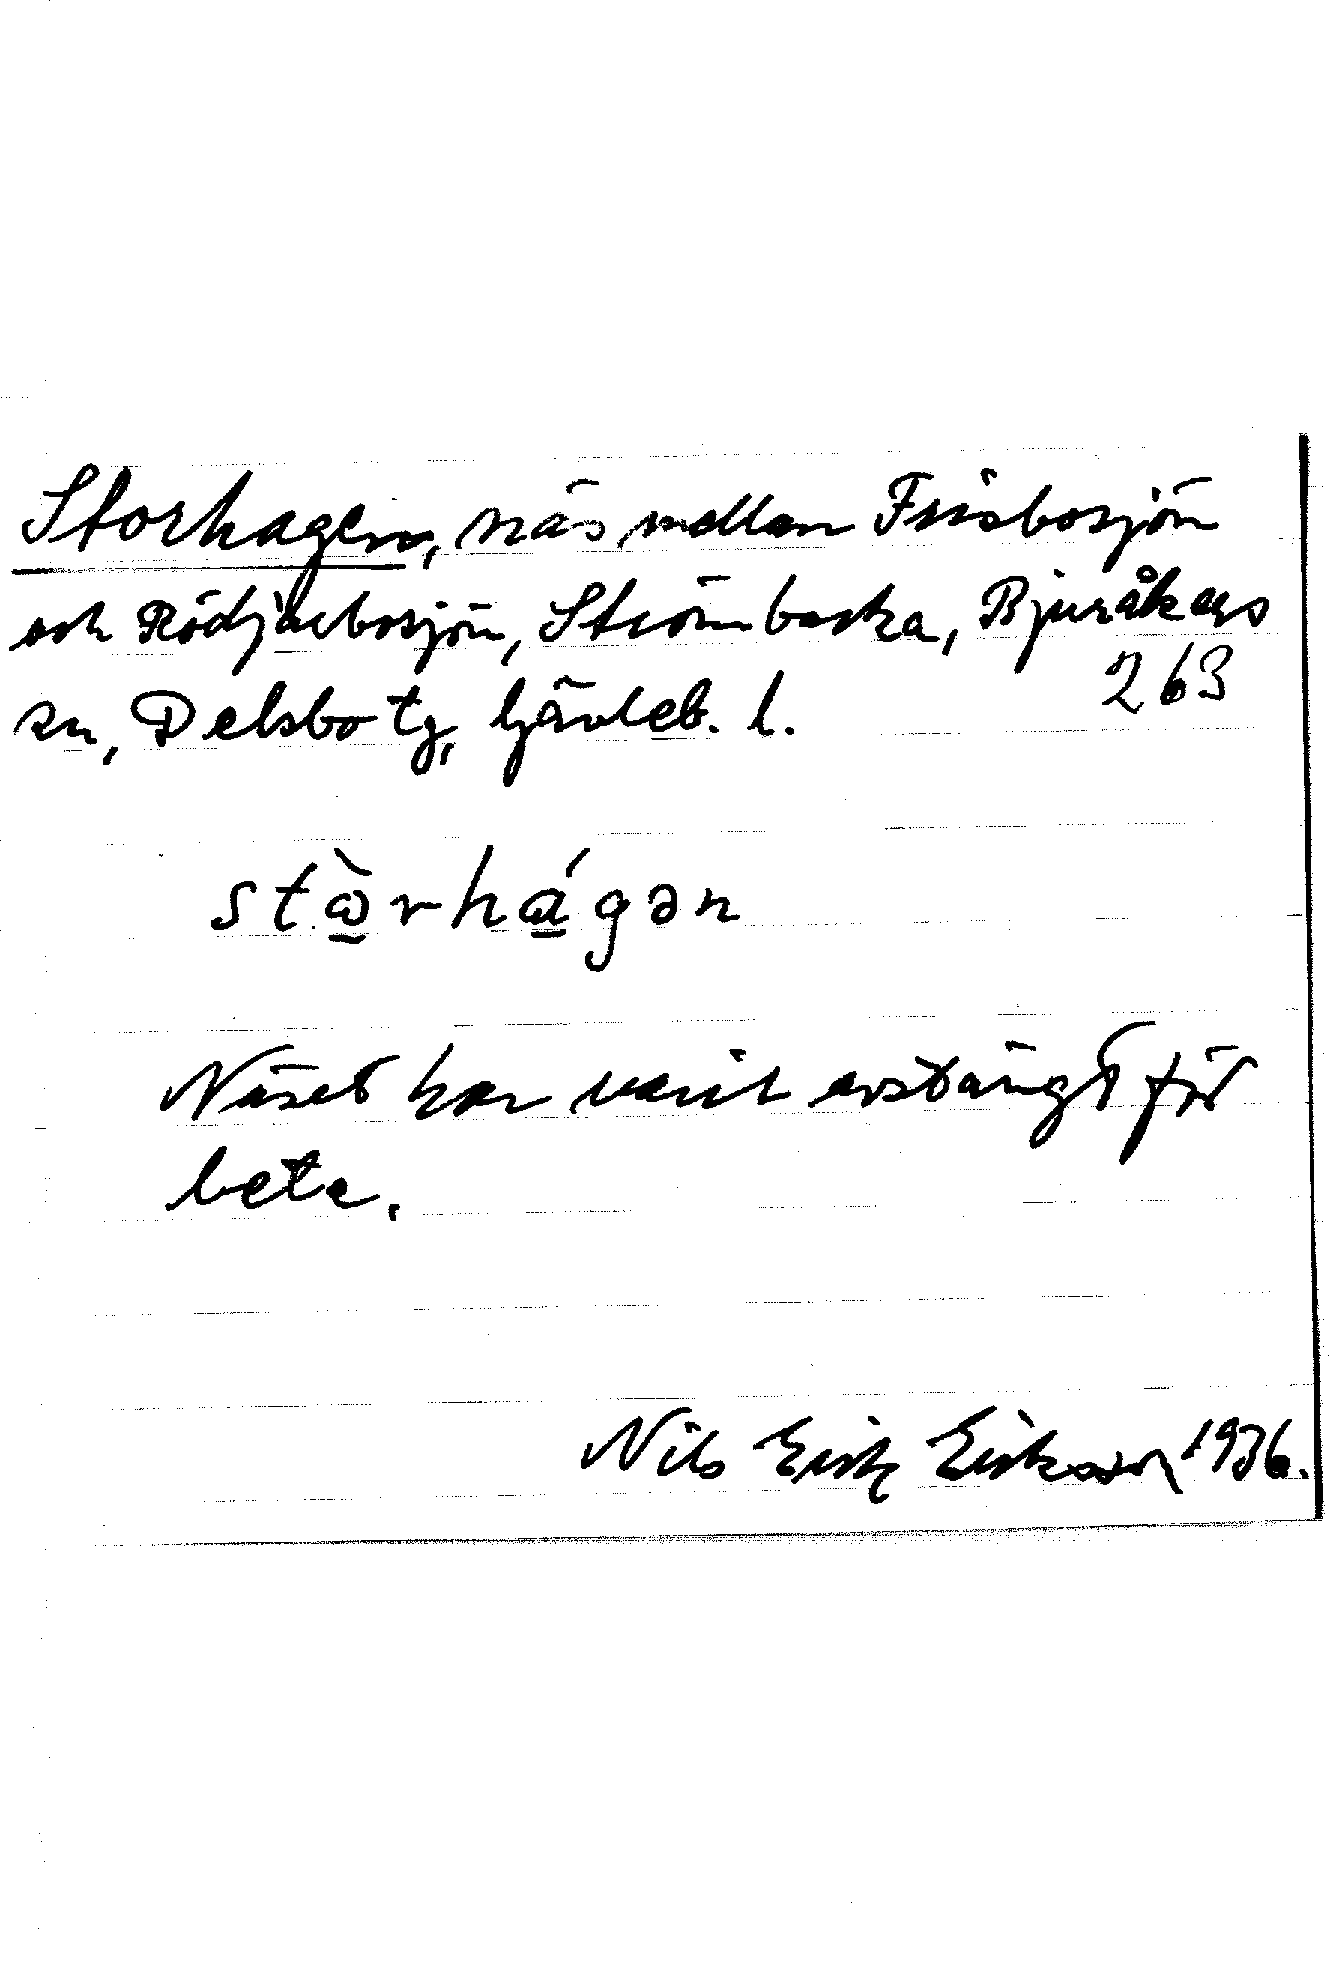 Storhagen, näs mellan Frisbosjön
och Rödjebosjön, Strömbacka, Bjuråkers
263
sn, Delsbo tg, Gävleb. l.
stὼ̱rhά̱gən
Näset har varit avstängt för
bete.
Nils Erik Eriksson 1936.